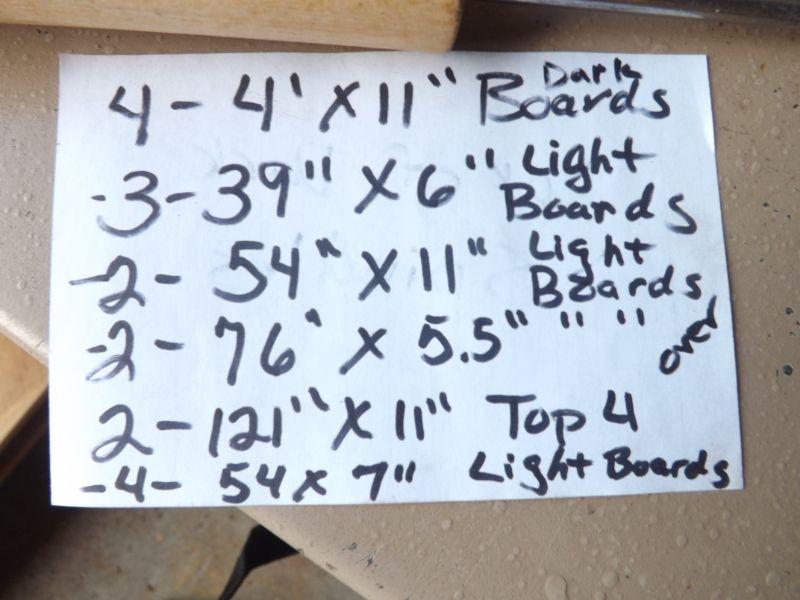 4 - 4' x 11" Dark Boards
-3- 39" x 6" Light Boards
-2- 54" x 11" Light Boards
-2- 76' x 5.5" " "
over
2 - 121" x 11" Top 4
-4- 54 x 7" Light Boards